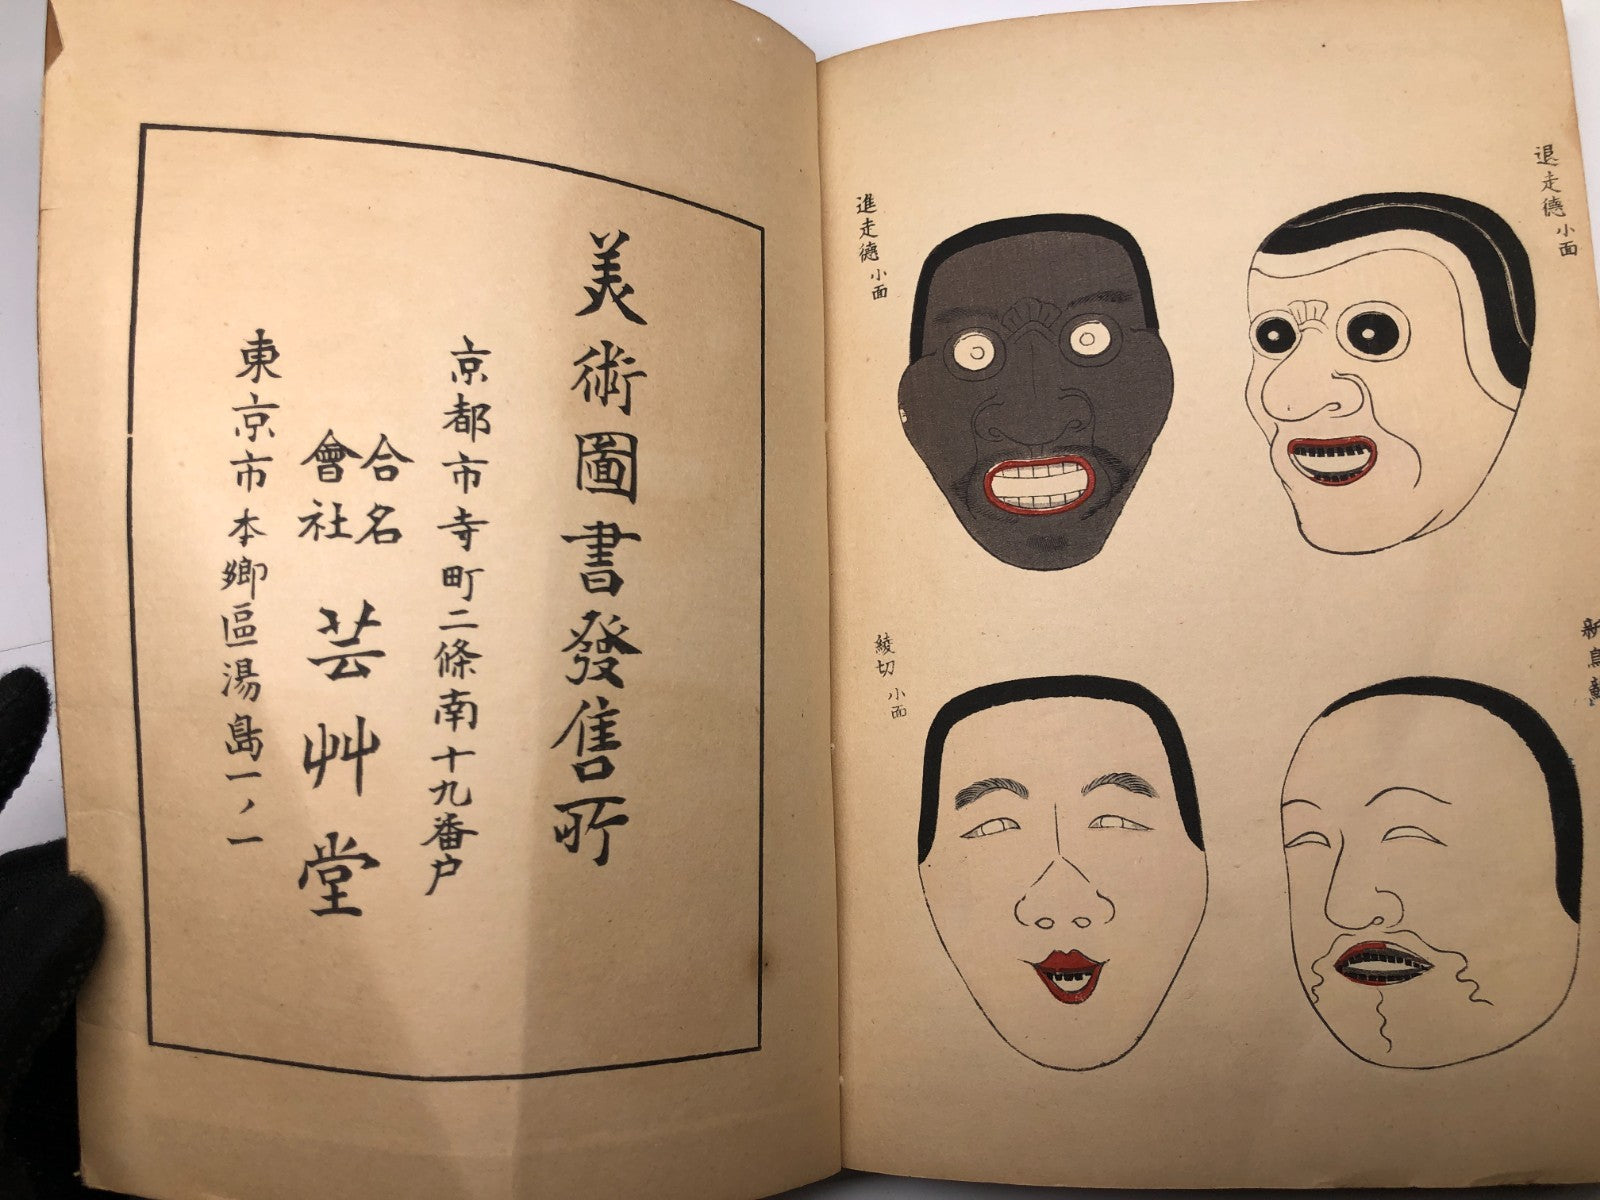 退走德 小面
進走德 小面
綾切 小面
美術圖書發售所
京都市寺町二條南十九番戸
合名
會社
芸艸堂
東京市本郷區湯島一ノ一
新鳥